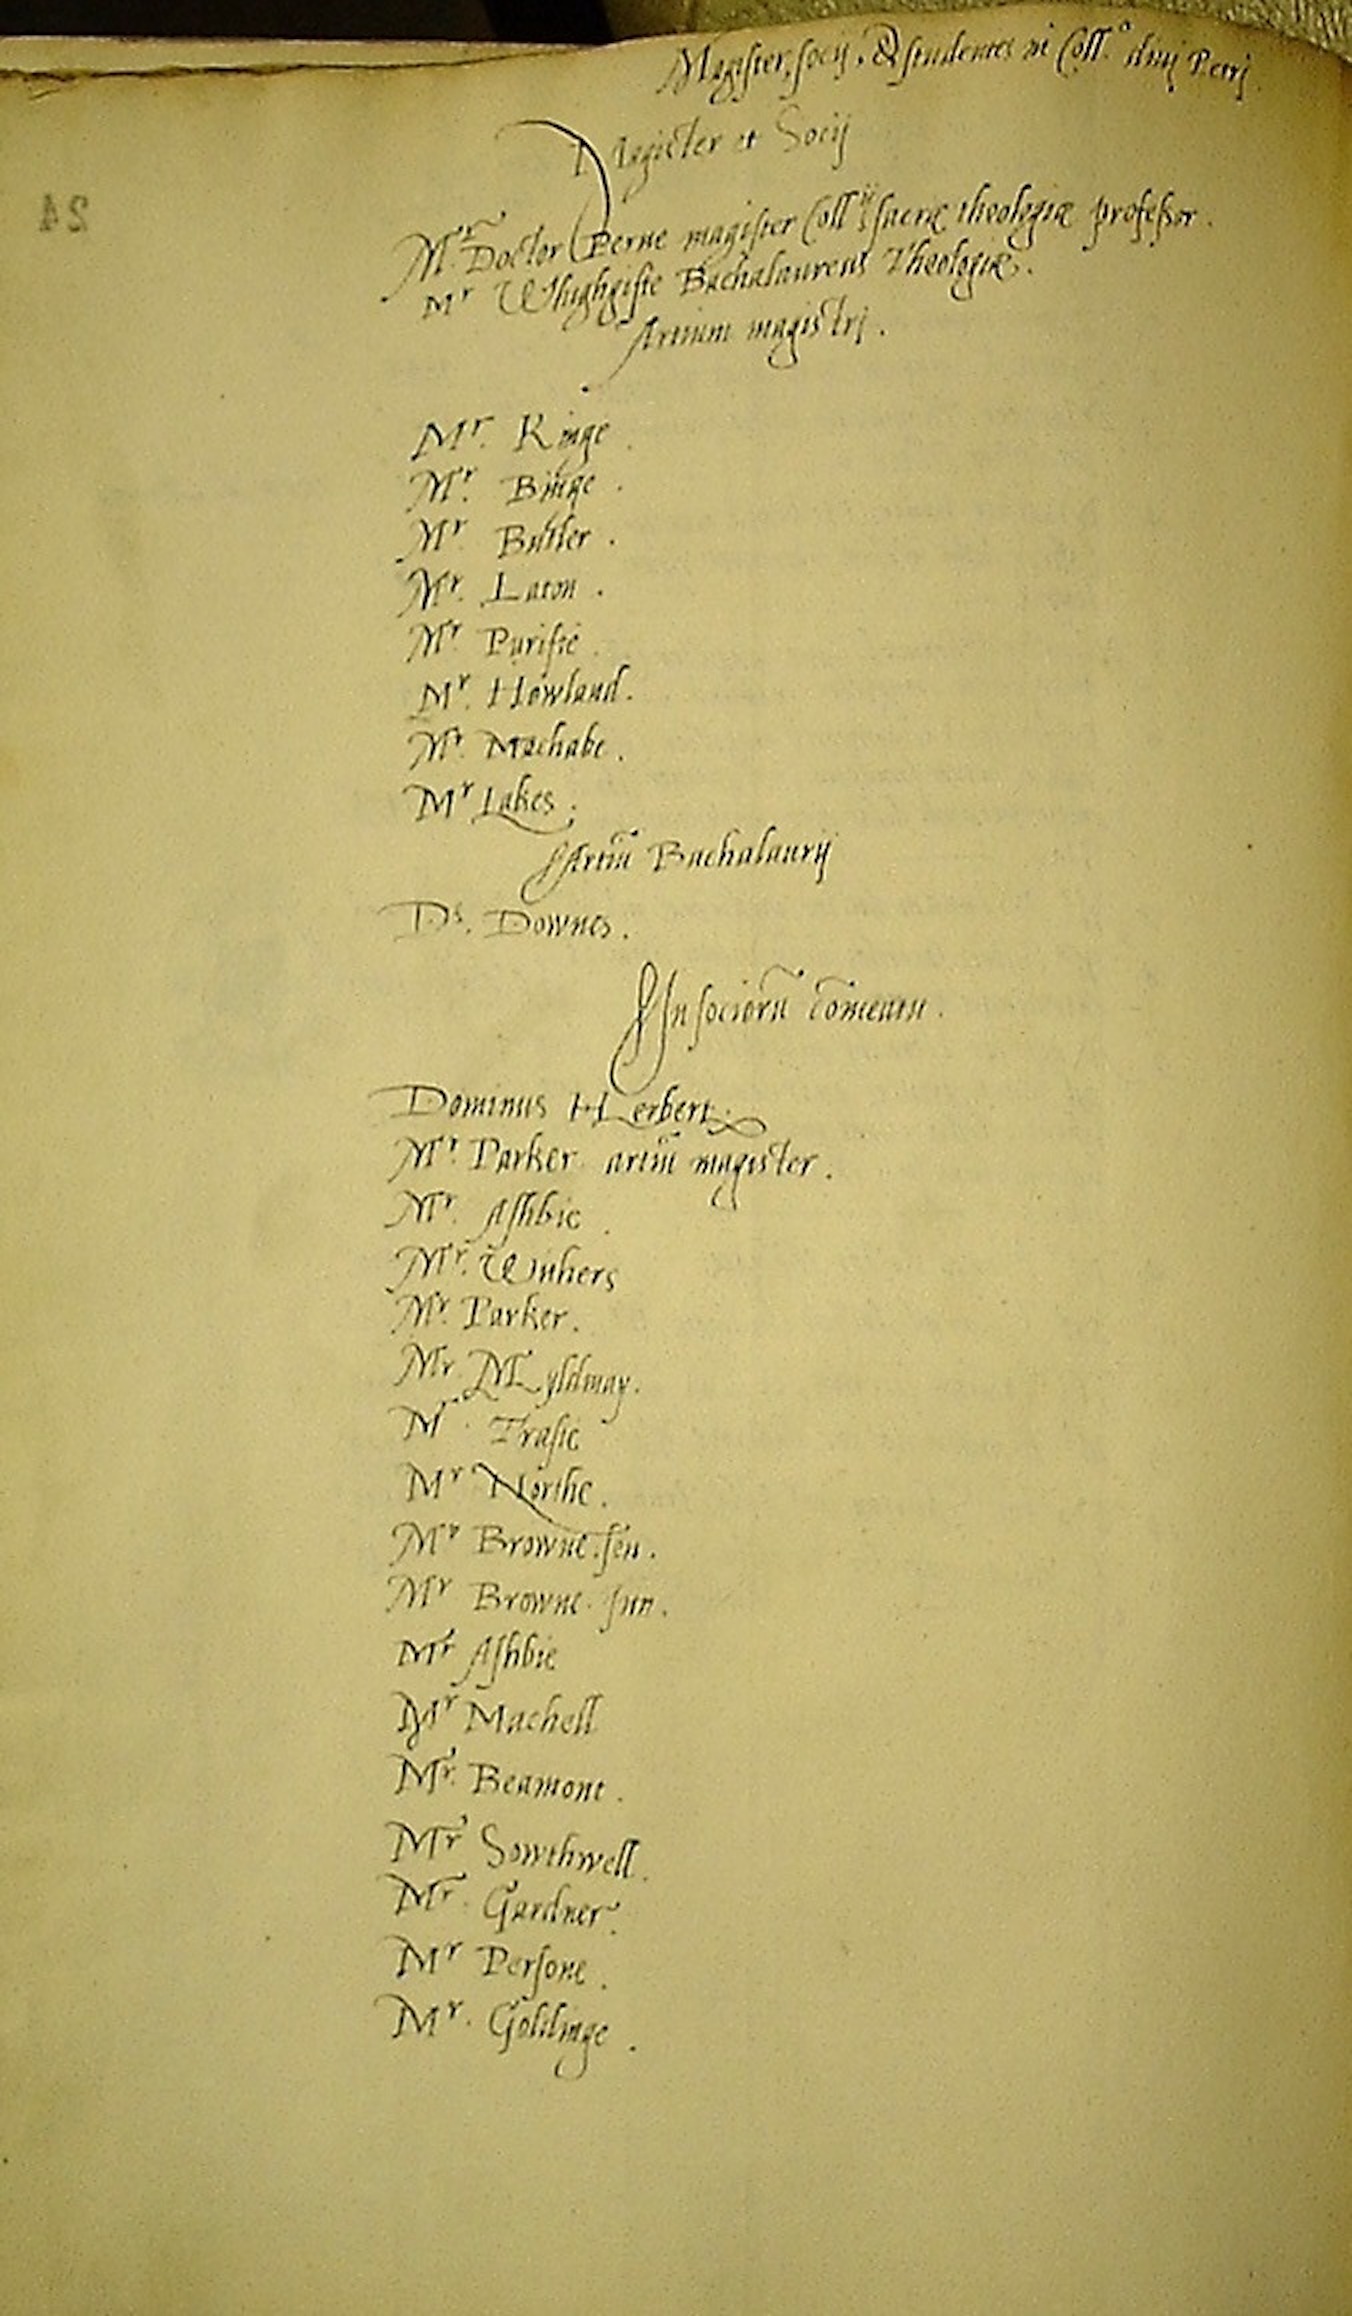 Magister, socij, & studentes in Coll.o divi Petri
Magister et Socij
24
Mr. Doctor Perne magister Collij sacræ theologiæ professor.
Mr Whighgifte Bachalaureus Theologiæ.
Artium magistri.
Mr. Kinge.
Mr. Binge.
Mr. Butler.
Mr. Laton.
Mr Purifie.
Mr. Howland.
Mr. Machabe.
Mr Lakes.
Artiū Bachalaurij
Ds. Downes.
In sociorū cōmeatu.
Dominus Herbert.
Mr. Parker artiū magister.
Mr. Ashbie.
Mr. Withers
Mr. Parker.
Mr Myldmay.
Mr. Trasie
Mr Northe.
Mr Browne. sen.
Mr Browne. jun.
Mr Ashbie
Mr Machell
Mr. Beamont.
Mr Sowthwell.
Mr. Gardner.
Mr Persone.
Mr. Goldinge.